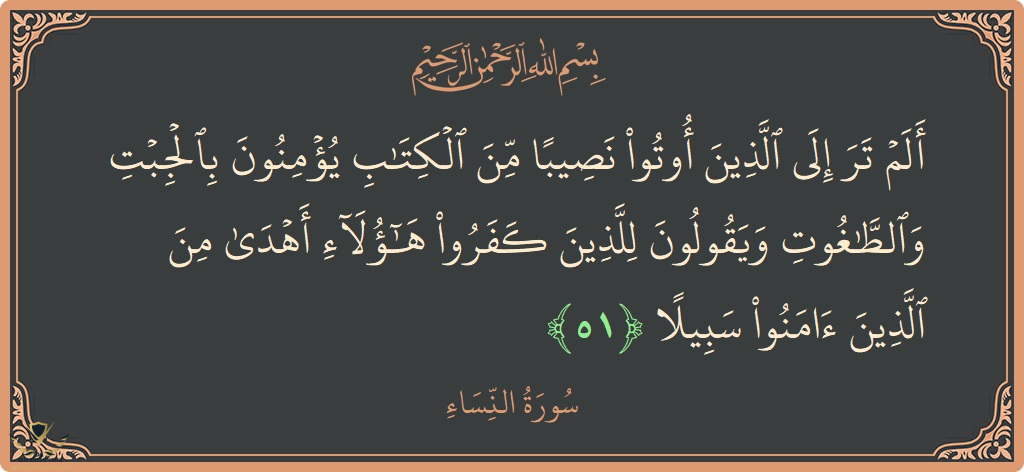 بِسْمِ اللَّهِ الرَّحْمَٰنِ الرَّحِيمِ
أَلَمْ تَرَ إِلَى ٱلَّذِينَ أُوتُوا۟ نَصِيبًا مِّنَ ٱلْكِتَٰبِ يُؤْمِنُونَ بِٱلْجِبْتِ
وَٱلطَّٰغُوتِ وَيَقُولُونَ لِلَّذِينَ كَفَرُوا۟ هَٰٓؤُلَآءِ أَهْدَىٰ مِنَ
ٱلَّذِينَ ءَامَنُوا۟ سَبِيلًا ﴿٥١﴾
سُورَةُ النِّسَاءِ